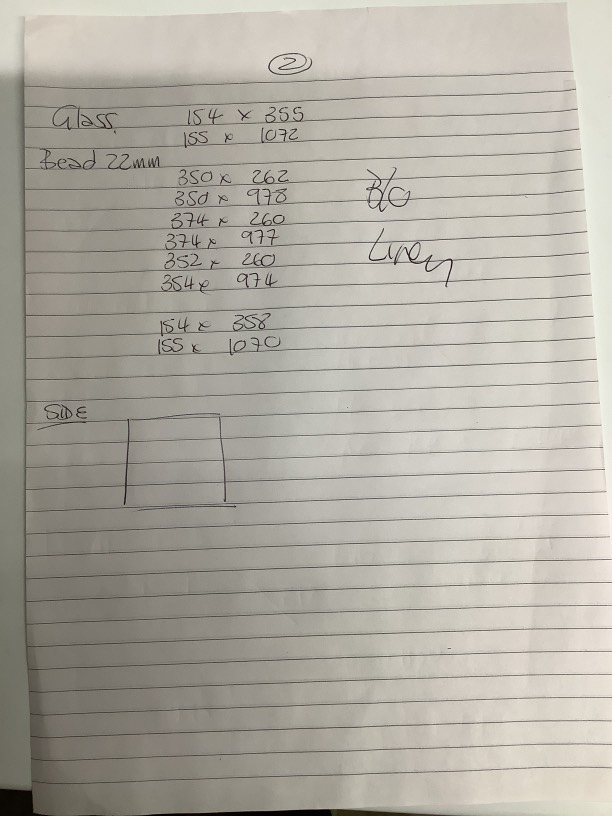 2
Glass. 154 x 355
155 x 1072
Bead 22mm
350 x 262
350 x 978
374 x 260
374 x 977
352 x 260
354 x 974
154 x 358
155 x 1070
SIDE